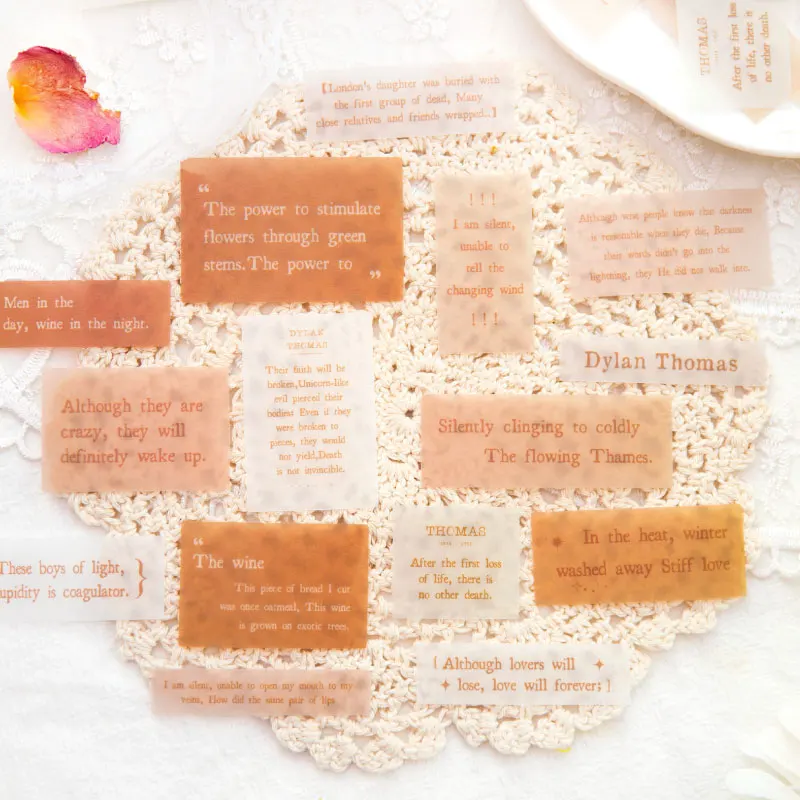 【London's daughter was buried with
the first group of dead, Many
close relatives and friends wrapped..】
THOMAS
After the first loss
of life, there is
no other death.
“
The power to stimulate
flowers through green
stems.The power to
”
! ! !
I am silent,
unable to
tell the
changing wind
! ! !
Although wise people know that darkness
is reasonable when they die, Because
their words didn't go into the
lightning, they He did not walk into.
Men in the
day, wine in the night.
DYLAN
THOMAS
Their faith will be
broken,Unicorn-like
evil pierced their
bodies! Even if they
were broken to
pieces, they would
not yield,Death
is not invincible.
Dylan Thomas
Although they are
crazy, they will
definitely wake up.
Silently clinging to coldly
The flowing Thames.
These boys of light,
upidity is coagulator. }
“
The wine
This piece of bread I cut
was once oatmeal, This wine
is grown on exotic trees.
THOMAS
After the first loss
of life, there is
no other death.
In the heat, winter
washed away Stiff love
[ Although lovers will
lose, love will forever; ]
I am silent, unable to open my mouth to my
veins, How did the same pair of lips